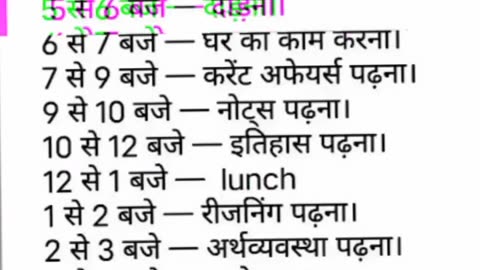 5 से 6 बजे — दौड़ना।
6 से 7 बजे — घर का काम करना।
7 से 9 बजे — करेंट अफेयर्स पढ़ना।
9 से 10 बजे — नोट्स पढ़ना।
10 से 12 बजे — इतिहास पढ़ना।
12 से 1 बजे — lunch
1 से 2 बजे — रीजनिंग पढ़ना।
2 से 3 बजे — अर्थव्यवस्था पढ़ना।